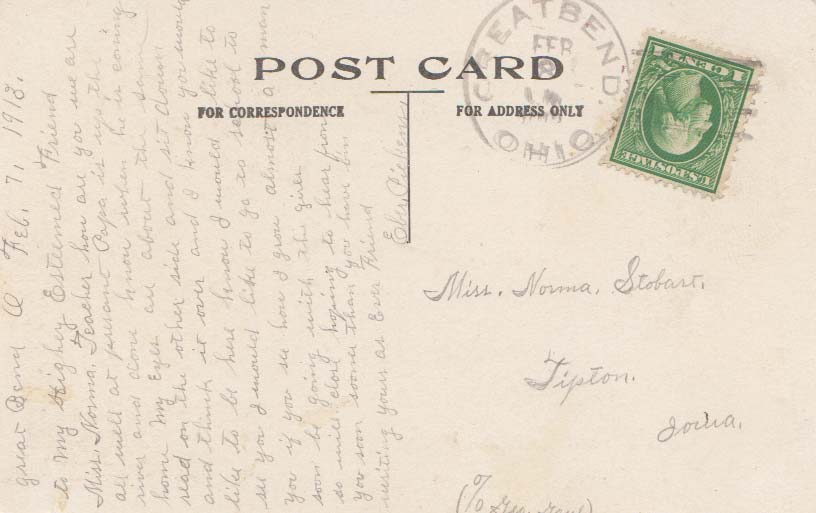 POST CARD
FOR CORRESPONDENCE
FOR ADDRESS ONLY
GREAT BEND
FEB
OHIO
U.S. POSTAGE
1 CENT 1
Great Bend O Feb. 7, 1913.
to My Highey Esteemed Friend
Miss. Norma. Teacher how are you we are
all well at present Papa is up the
river and dont know when he is coming
home My Eyes are about the same
read on the other side and sit down
and think it over and I know you would
like to be here know I would like to
see you I would like to go to school to
you if you see how I grow almost a man
soon be going with the girls
so will close hoping to hear from
you soon sooner than you have bin
writing yours as Ever Friend
Eber Pickens
Miss. Norma. Stobart.
Tipton.
Iowa.
(c/o Geo.